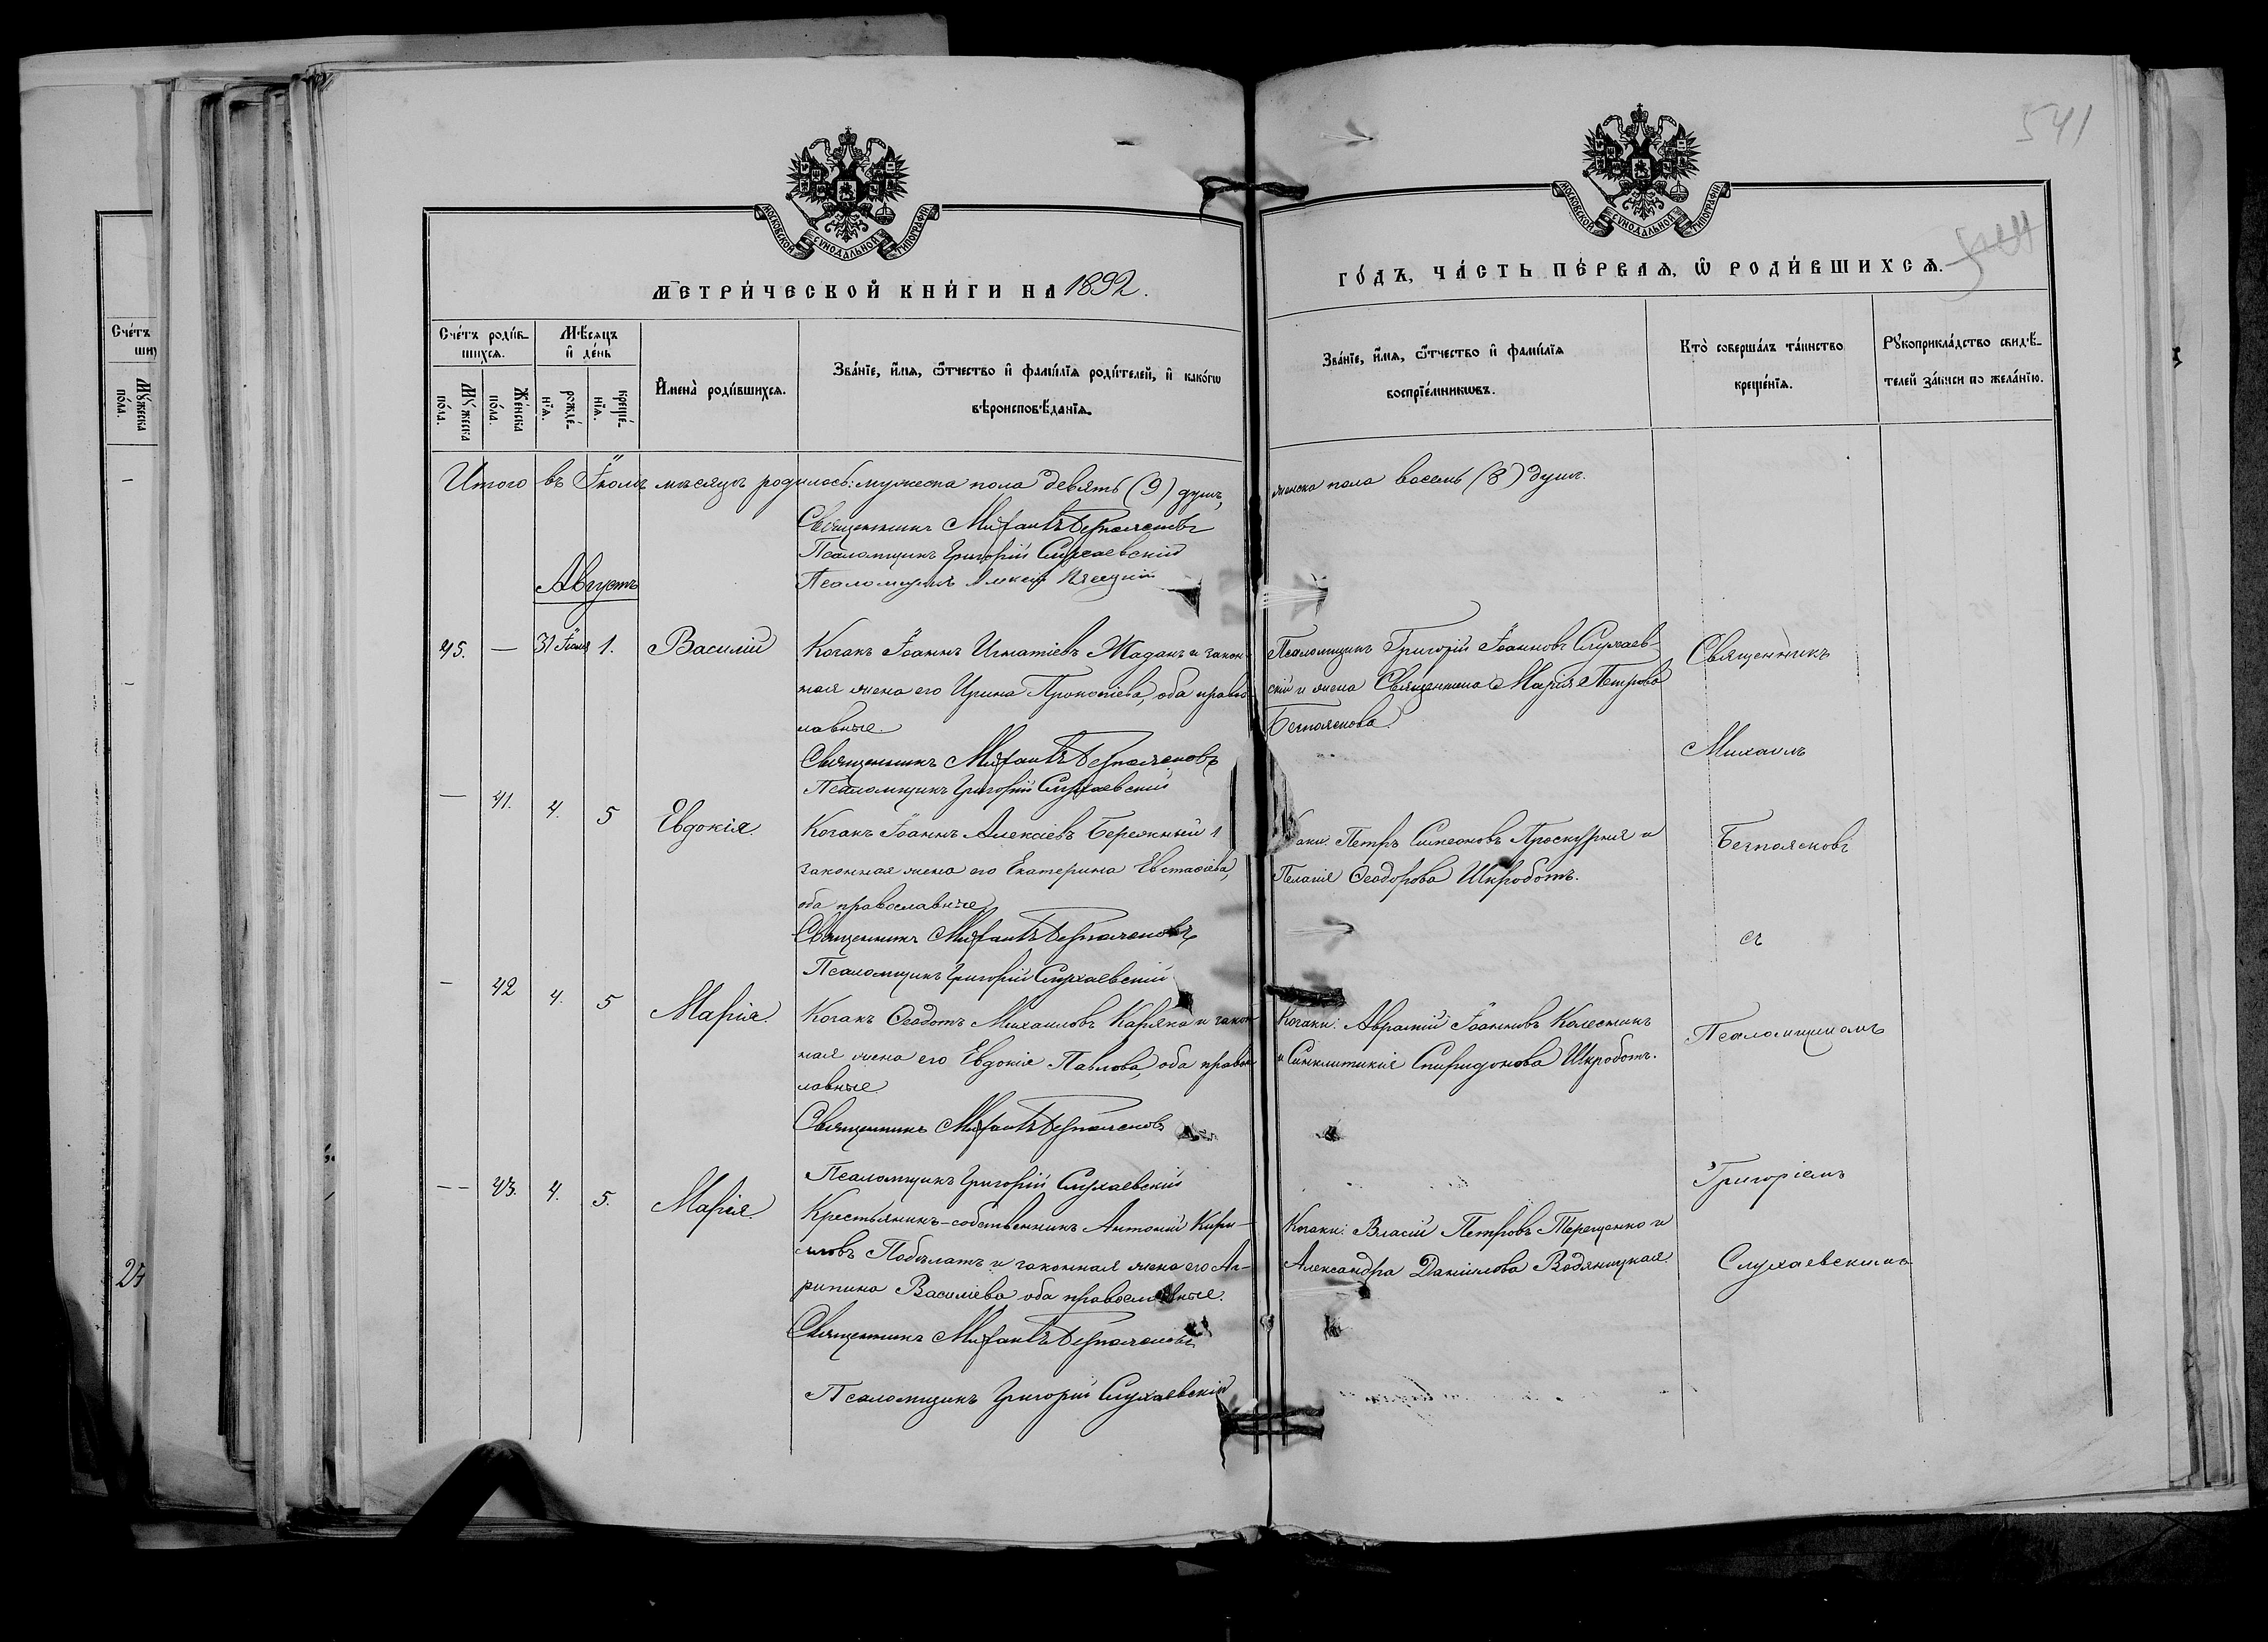 541
МОСКОВСКОЙ СѴНОДАЛЬНОЙ ТИПОГРАФІИ
МОСКОВСКОЙ СѴНОДАЛЬНОЙ ТИПОГРАФІИ
МЕТРИ́ЧЕСКОЙ КНИ́ГИ НА 1892.
ГО́ДЪ, ЧА́СТЬ ПЕ́РВАѦ, Ѡ҆ РОДИ́ВШИХСѦ.
Сче́тъ роди́в-
шихсѧ.
Мѣ́сѧцъ
и҆ де́нь
Мꙋ́жеска по́ла.
Же́нска по́ла.
рожде́-нїѧ.
креще́-нїѧ.
И҆мена̀ роди́вшихсѧ.
Зва́нїе, и҆́мѧ, ѻ҆́тчество и҆ фами́лїѧ роди́телей, и҆ како́гѡ
вѣроисповѣ́данїѧ.
Зва́нїе, и҆́мѧ, ѻ҆́тчество и҆ фами́лїѧ
воспрїе́мникѡвъ.
Кто̀ соверша́лъ та́инство
креще́нїѧ.
Рꙋкоприкла́дство свидѣ́-
телей за́писи по жела́нїю.
Сче́тъ
Мꙋ́жеска по́ла.
Итого въ Іюлѣ мѣсяцѣ родилось: мужеска пола девять (9) душъ,
женска пола восемь (8) душъ.
Священникъ Михаилъ Безпоясковъ
Псаломщикъ Григорій Слухаевскій
Псаломщикъ Алексій
Августъ
45. — 31 Іюля 1. Василій
Козакъ Іоаннъ Игнатіевъ Жаданъ и закон-
ная жена его Ирина Прокопіева, оба право-
славные.
Псаломщикъ Григорій Іоанновъ Слухаев-
скій и жена Священника Марія Петрова
Безпояскова.
Священникъ
Священникъ Михаилъ Безпоясковъ
Псаломщикъ Григорій Слухаевскій
Михаилъ
— 41. 4. 5 Евдокія.
Козакъ Іоаннъ Алексіевъ Бережный и
законная жена его Екатерина Евстафіева,
оба православные
Козаки: Петръ Симеоновъ Проскурня и
Пелагія Ѳеодорова Шкроботъ.
Безпоясковъ
Священникъ Михаилъ Безпоясковъ
Псаломщикъ Григорій Слухаевскій
съ
— 42 4. 5 Марія.
Козакъ Ѳеодотъ Михаиловъ Каряка и закон-
ная жена его Евдокія Павлова, оба правос-
лавные
Козаки: Аврамій Іоанновъ Колесникъ
и Синклитикія Спиридонова Шкроботъ.
Псаломщикомъ
Священникъ Михаилъ Безпоясковъ
Псаломщикъ Григорій Слухаевскій
Григоріемъ
— 43. 4. 5. Марія.
Крестьянинъ-собственникъ Антоній Кири-
ловъ Побѣлатъ и законная жена его Аг-
рипина Василіева оба православные.
Козаки: Власій Петровъ Терещенко и
Александра Даніилова Водяницкая.
Слухаевскимъ
Священникъ Михаилъ Безпоясковъ
Псаломщикъ Григорій Слухаевскій